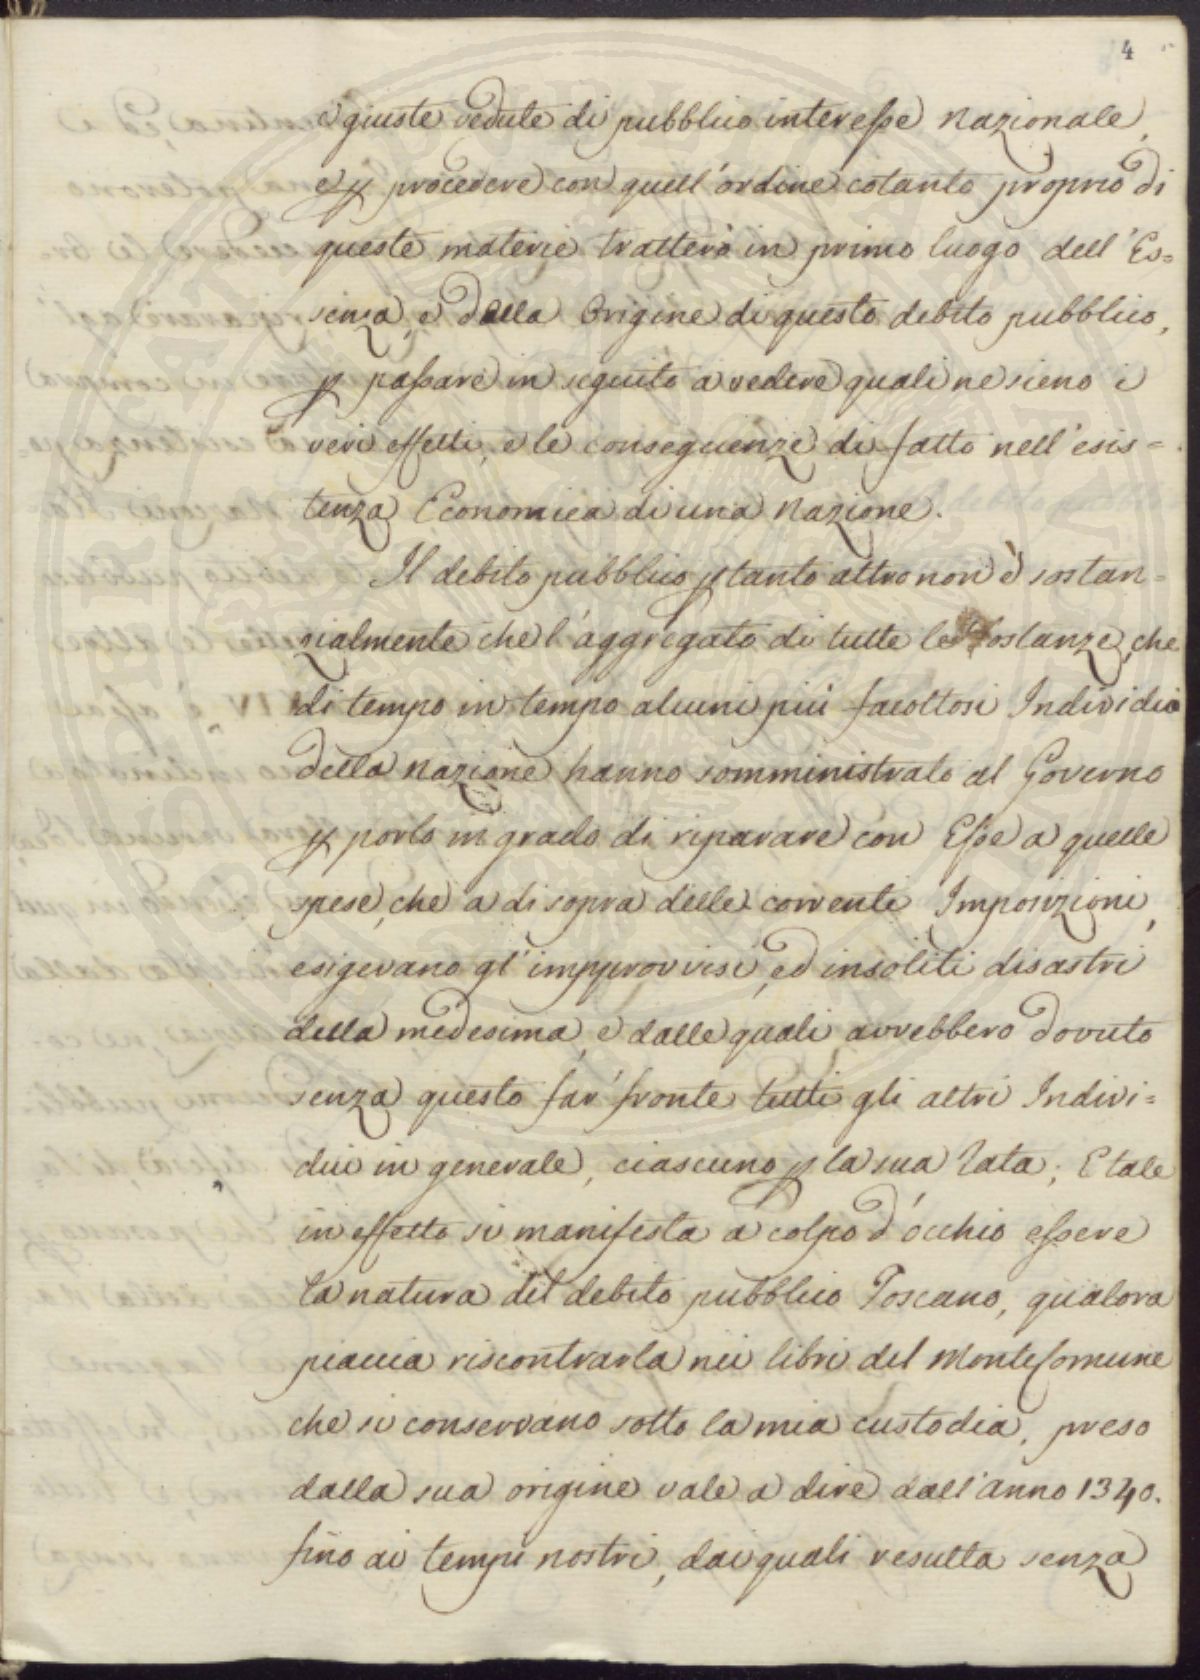 4
e giuste vedute di pubblico interesse Nazionale,
e p procedere con quell'ordine cotanto proprio di
queste materie tratterò in primo luogo dell'Es=
senza, e della Origine di questo debito pubblico,
p passare in seguito a vedere quali ne sieno i
veri effetti, e le conseguenze di fatto nell'esis=
tenza Economica di una Nazione.
Il debito pubblico ptanto altro non è sostan=
zialmente che l'aggregato di tutte le Sostanze, che
di tempo in tempo alcuni più facoltosi Individui
della Nazione hanno somministrato al Governo
p porlo in grado di riparare con Esse a quelle
spese, che a di sopra delle correnti Imposizioni,
esigevano gl'impprovvisi, ed insoliti disastri
della medesima, e dalle quali avrebbero dovuto
senza questo far fronte tutti gli altri Indivi=
dui in generale, ciascuno p la sua rata; E tale
in effetto si manifesta a colpo d'occhio essere
la natura del debito pubblico Toscano, qualora
piaccia riscontrarla nei libri del Monte Comune
che si conservano sotto la mia custodia, preso
dalla sua origine vale a dire dall'anno 1340.
fino ai tempi nostri, dai quali resulta senza